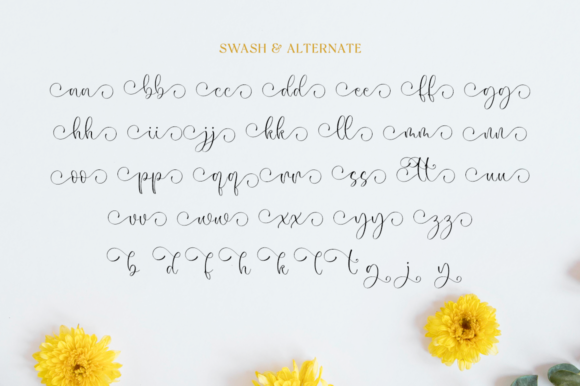 SWASH & ALTERNATE
aa bb cc dd ee ff gg
hh ii jj kk ll mm nn
oo pp qq rr ss tt uu
vv ww xx yy zz
b d f h k l t g j y